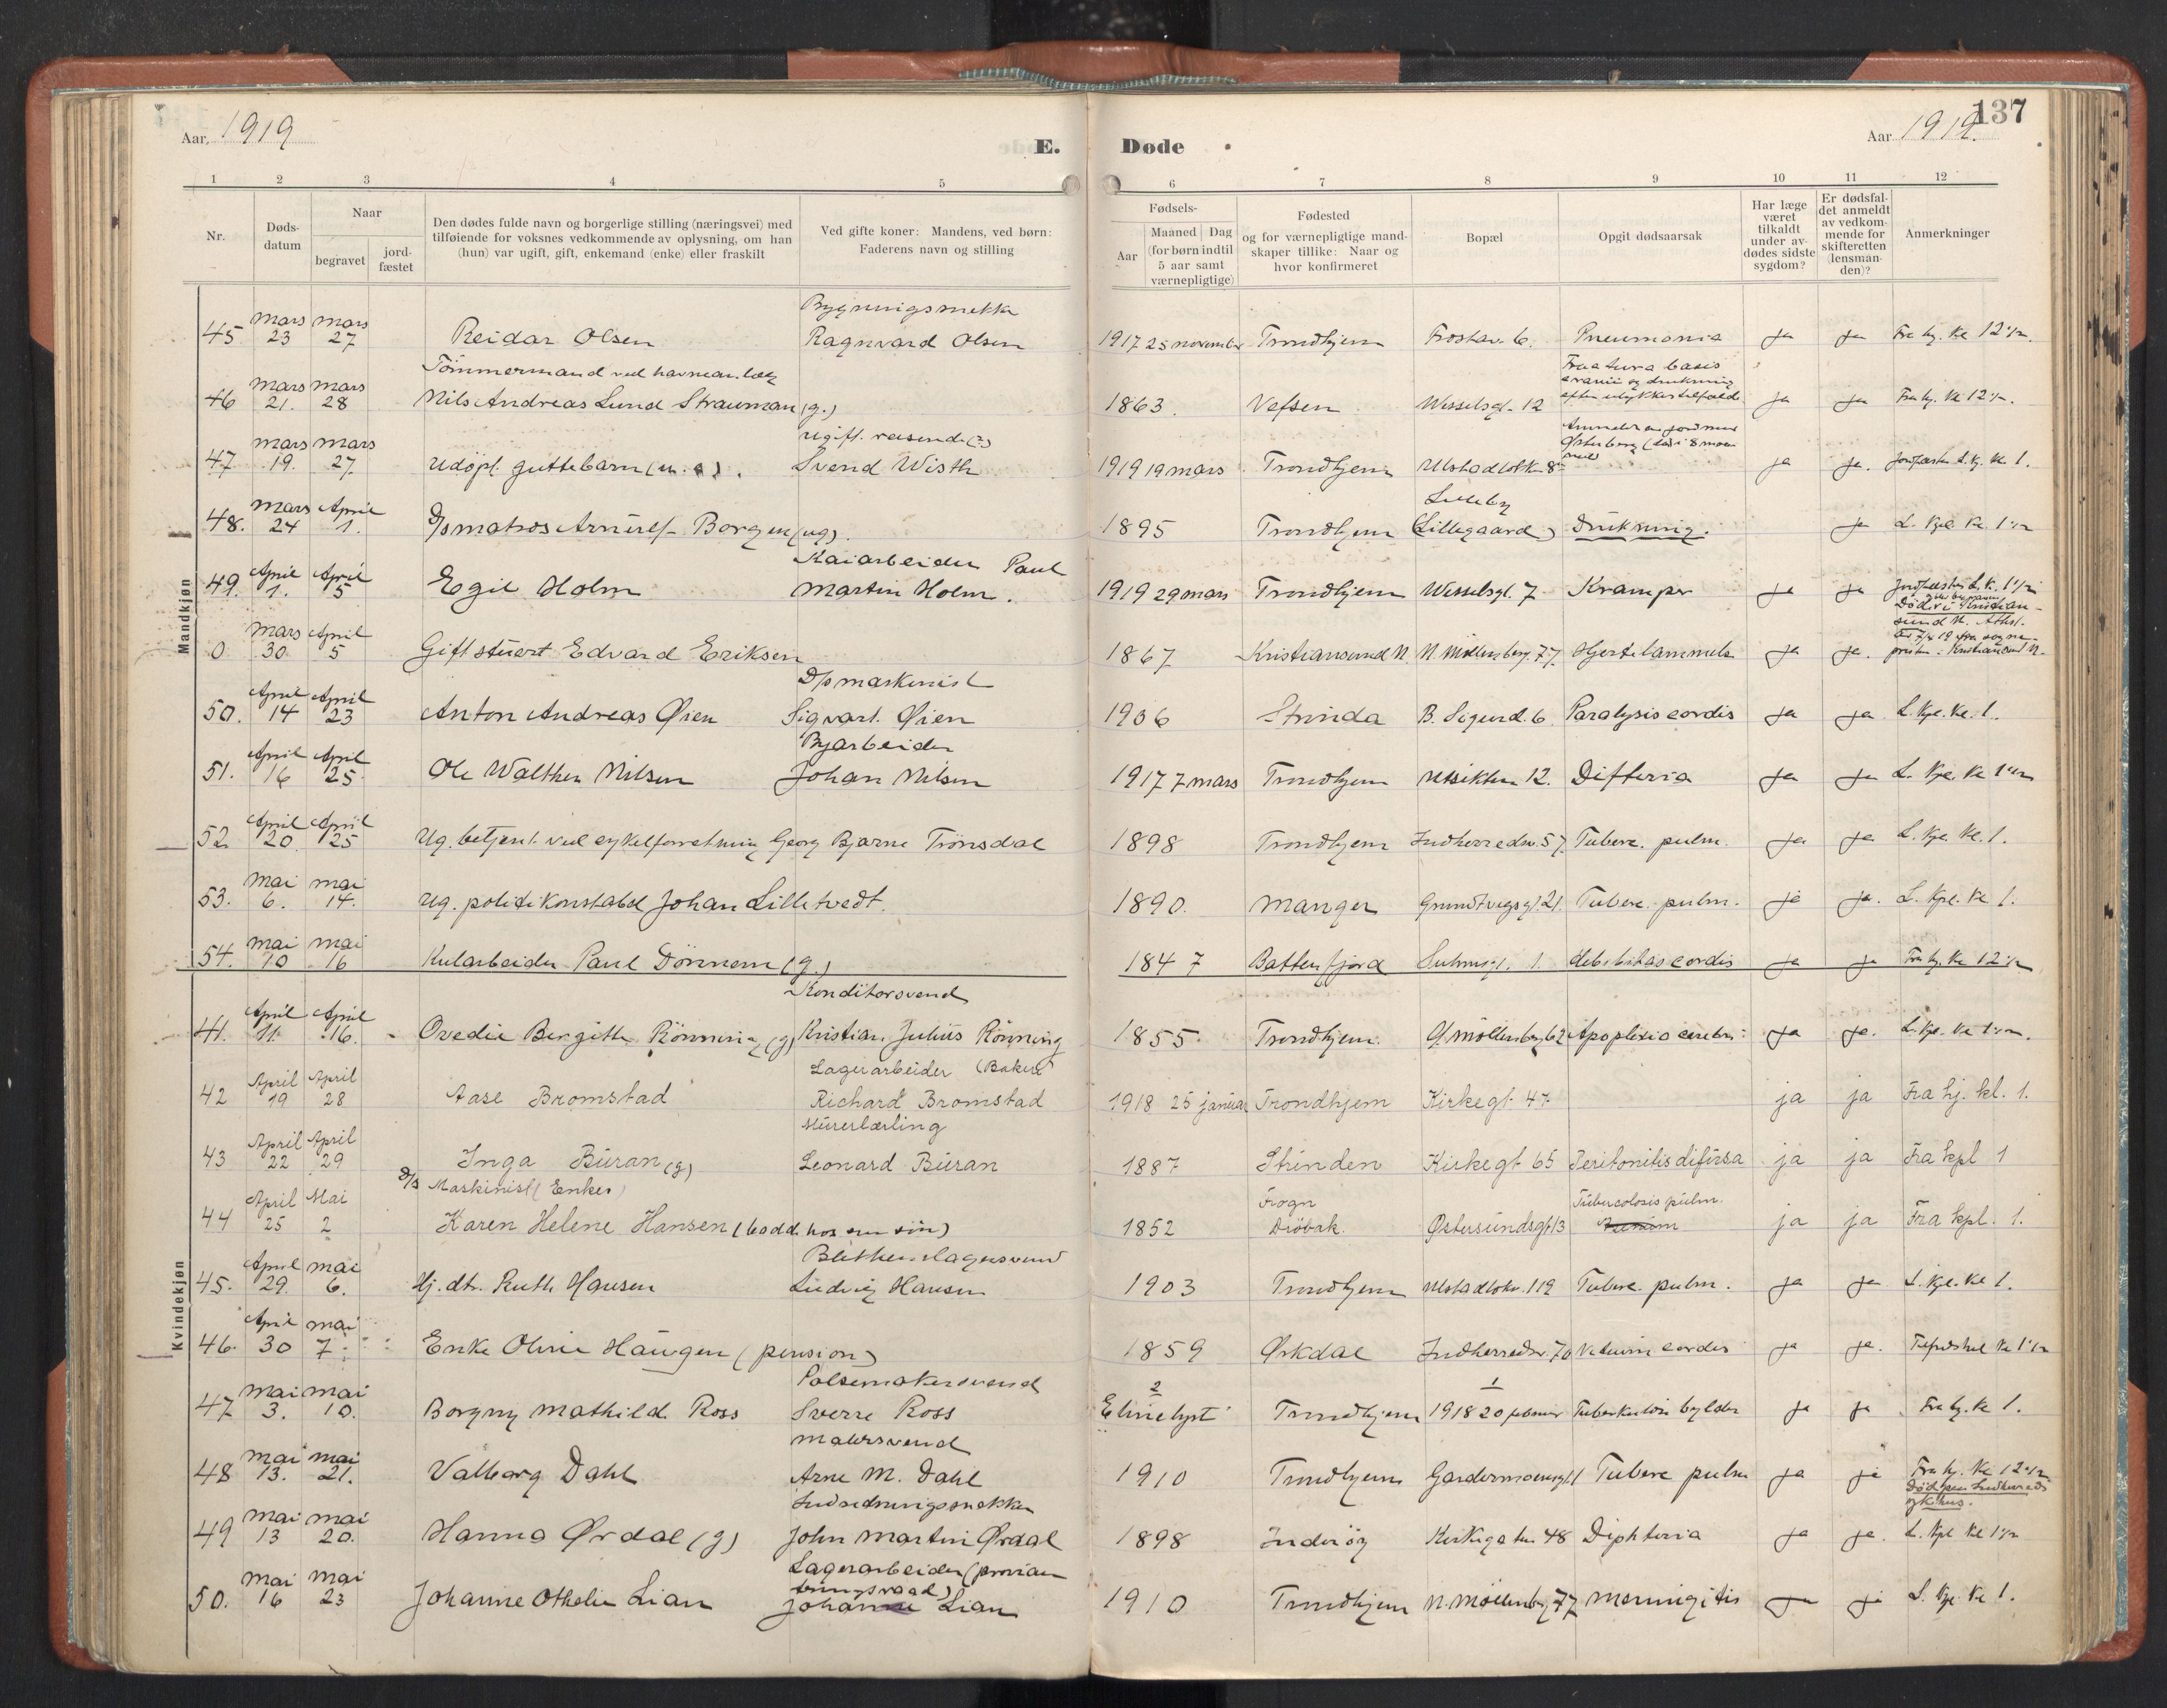 Aar 1919
E.
Døde
Aar 1919.
137
1 2 3 4 5 6 7 8 9 10 11 12
Nr.
Døds-
datum
Naar
begravet
jord-
fæstet
Den dødes fulde navn og borgerlige stilling (næringsvei) med
tilføiende for voksnes vedkommende av oplysning, om han
(hun) var ugift, gift, enkemand (enke) eller fraskilt
Ved gifte koner: Mandens, ved børn:
Faderens navn og stilling
Fødsels-
Aar
Maaned Dag
(for børn indtil
5 aar samt
værnepligtige)
Fødested
og for værnepligtige mand-
skaper tillike: Naar og
hvor konfirmeret
Bopæl
Opgit dødsaarsak
Har læge
været
tilkaldt
under av-
dødes sidste
sygdom?
Er dødsfal-
det anmeldt
av vedkom-
mende for
skifteretten
(lensman-
den)?
Anmerkninger
Mandkjøn
mars mars Bygningsnekker
45. 23 27 Reidar Olsen Ragnvard Olsen 1917 25 november Trondhjem Frostav. 6. Pneumonia ja ja Fra hj. kl 12 1/2.
Tömmermand ved havnean. Fractura basis
mars mars cranii og drukning
46 21. 28 Nils Andreas Lund Strauman (g.) 1863. Vefsen Wesselsgt. 12 efter ulykkestilfælde ja ja Fra hj. kl 12 1/2.
mars mars ugift. reisende (?)
47 19. 27. Udöpt guttebarn (u. e). Svend Wisth 1919 19 mars Trondhjem ja ja. L. kj. kl 1.
mars April Lilleby
48. 24 1. D/s matros Arnulf Borgen (ug). 1895 Trondhjem (Lillegaard) Drukning. ja L. Kpl kl. 1 1/2
April April Kaiarbeider Paul
49. 1. 5 Egil Holm Martin Holm. 1919 29 mars Trondhjem Wesselsgt. 7 Kramper ja ja
mars April
0 30 5 Gift stuert Edvard Eriksen 1867 Kristiansund N. N. Möllenberg. 77. Hjertelammelse ja ja.
April April D/s maskinist
50. 14 23 Anton Andreas Øien Sigvart Øien 1906 Strinda B. Sigurd. 6 Paralysis cordis ja ja L. Kpl. kl. 1.
April April Byarbeider
51. 16 25 Ole Walther Nilsen Johan Nilsen 1917 7 mars Trondhjem Utsikten 12. Difteria ja ja L. Kpl. kl 1 1/2
April April
52 20 25 Ug. betjent ved cykelforretning Georg Bjarne Trönsdal 1898 Trondhjem Indherredsv. 57. Tuberc. pulm. ja ja L. Kpl. kl. 1.
mai mai
53. 6. 14. Ug. politikonstabel Johan Lilletvedt. 1890. Manger Grundtvigsgt. 21. Tuberc. pulm. ja ja. L. Kpl. kl 1.
mai mai
54. 10 16 Kularbeider Paul Dönnem (g.) 1847 Battenfjord Suhmsgt. 1. debilitas cordis ja ja Fra hj. kl 12 1/2
Kvindekjøn
April April Konditorsvend
41. 11. 16. Ovedie Bergitte Rönning (g) Kristian Julius Rönning 1855. Trondhjem. Ø. Möllenberg 62 Apoplexia cerebri ja ja. L. Kpl. kl 1 1/2.
April April Lagerarbeider (Baker)
42 19 28 Aase Bromstad Richard Bromstad 1918 25 januar Trondhjem Kirkegt 47 ja ja Fra hj. kl. 1.
April April Murerlærling
43 22 29 Inga Buran (g) Leonard Buran 1887 Strinden Kirkegt 65 Peritonitis difusa ja ja Fra kpl 1
April Mai D/s Maskinist (Enke) Frogn Tuberculosis pulm.
44 25 2 Karen Helene Hansen (bodde hos sin sön) 1852 Dröbak. Østersundsgt 13 ja ja Fra kpl. 1.
April mai Blikkenslagersvend
45. 29. 6. Hj. dtr. Ruth Hansen Ludvig Hansen 1903 Trondhjem Ulstadløkv. 119 Tuberc. pulm. ja ja L. kpl. kl 1.
April mai
46. 30 7. Enke Oline Haugen (pension) 1859 Ørkdal Indherredsv. 70 Vitium cordis ja ja. kl 1 1/2
mai mai Pölsemakersvend 2 1
47 3. 10. Borgny Mathilde Ross Sverre Ross Elinelyst Trondhjem 1918 20 februar Tuberkulöse bylder ja ja Fra hj. kl 1.
mai mai Malersvend
48 13. 21. Valborg Dahl Arne M. Dahl 1910 Trondhjem Gardermoensgt 1 Tuberc pulm ja ja Fra hj. kl 12 1/2
mai mai Indredningssnekker Död paa Indherreds
sykehus.
49 13 20. Hanna Ørdal (g) John Martin Ørdal 1898 Inderöy Kirkegaten 48 Diphteria ja ja. L. Kpl kl 1 1/2
mai mai Lagerarbeider (provian
teringsraad)
50. 16 23 Johanne Othelie Lian Johan Lian 1910 Trondhjem N. Möllenberg 77 Menningitis ja ja L. Kpl. kl 1.